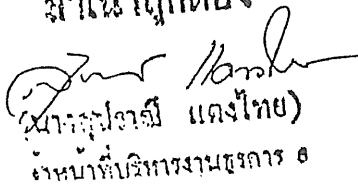 สำเนาถูกต้อง
(นางสุปราณี แดงไทย)
เจ้าหน้าที่บริหารงานธุรการ ๘